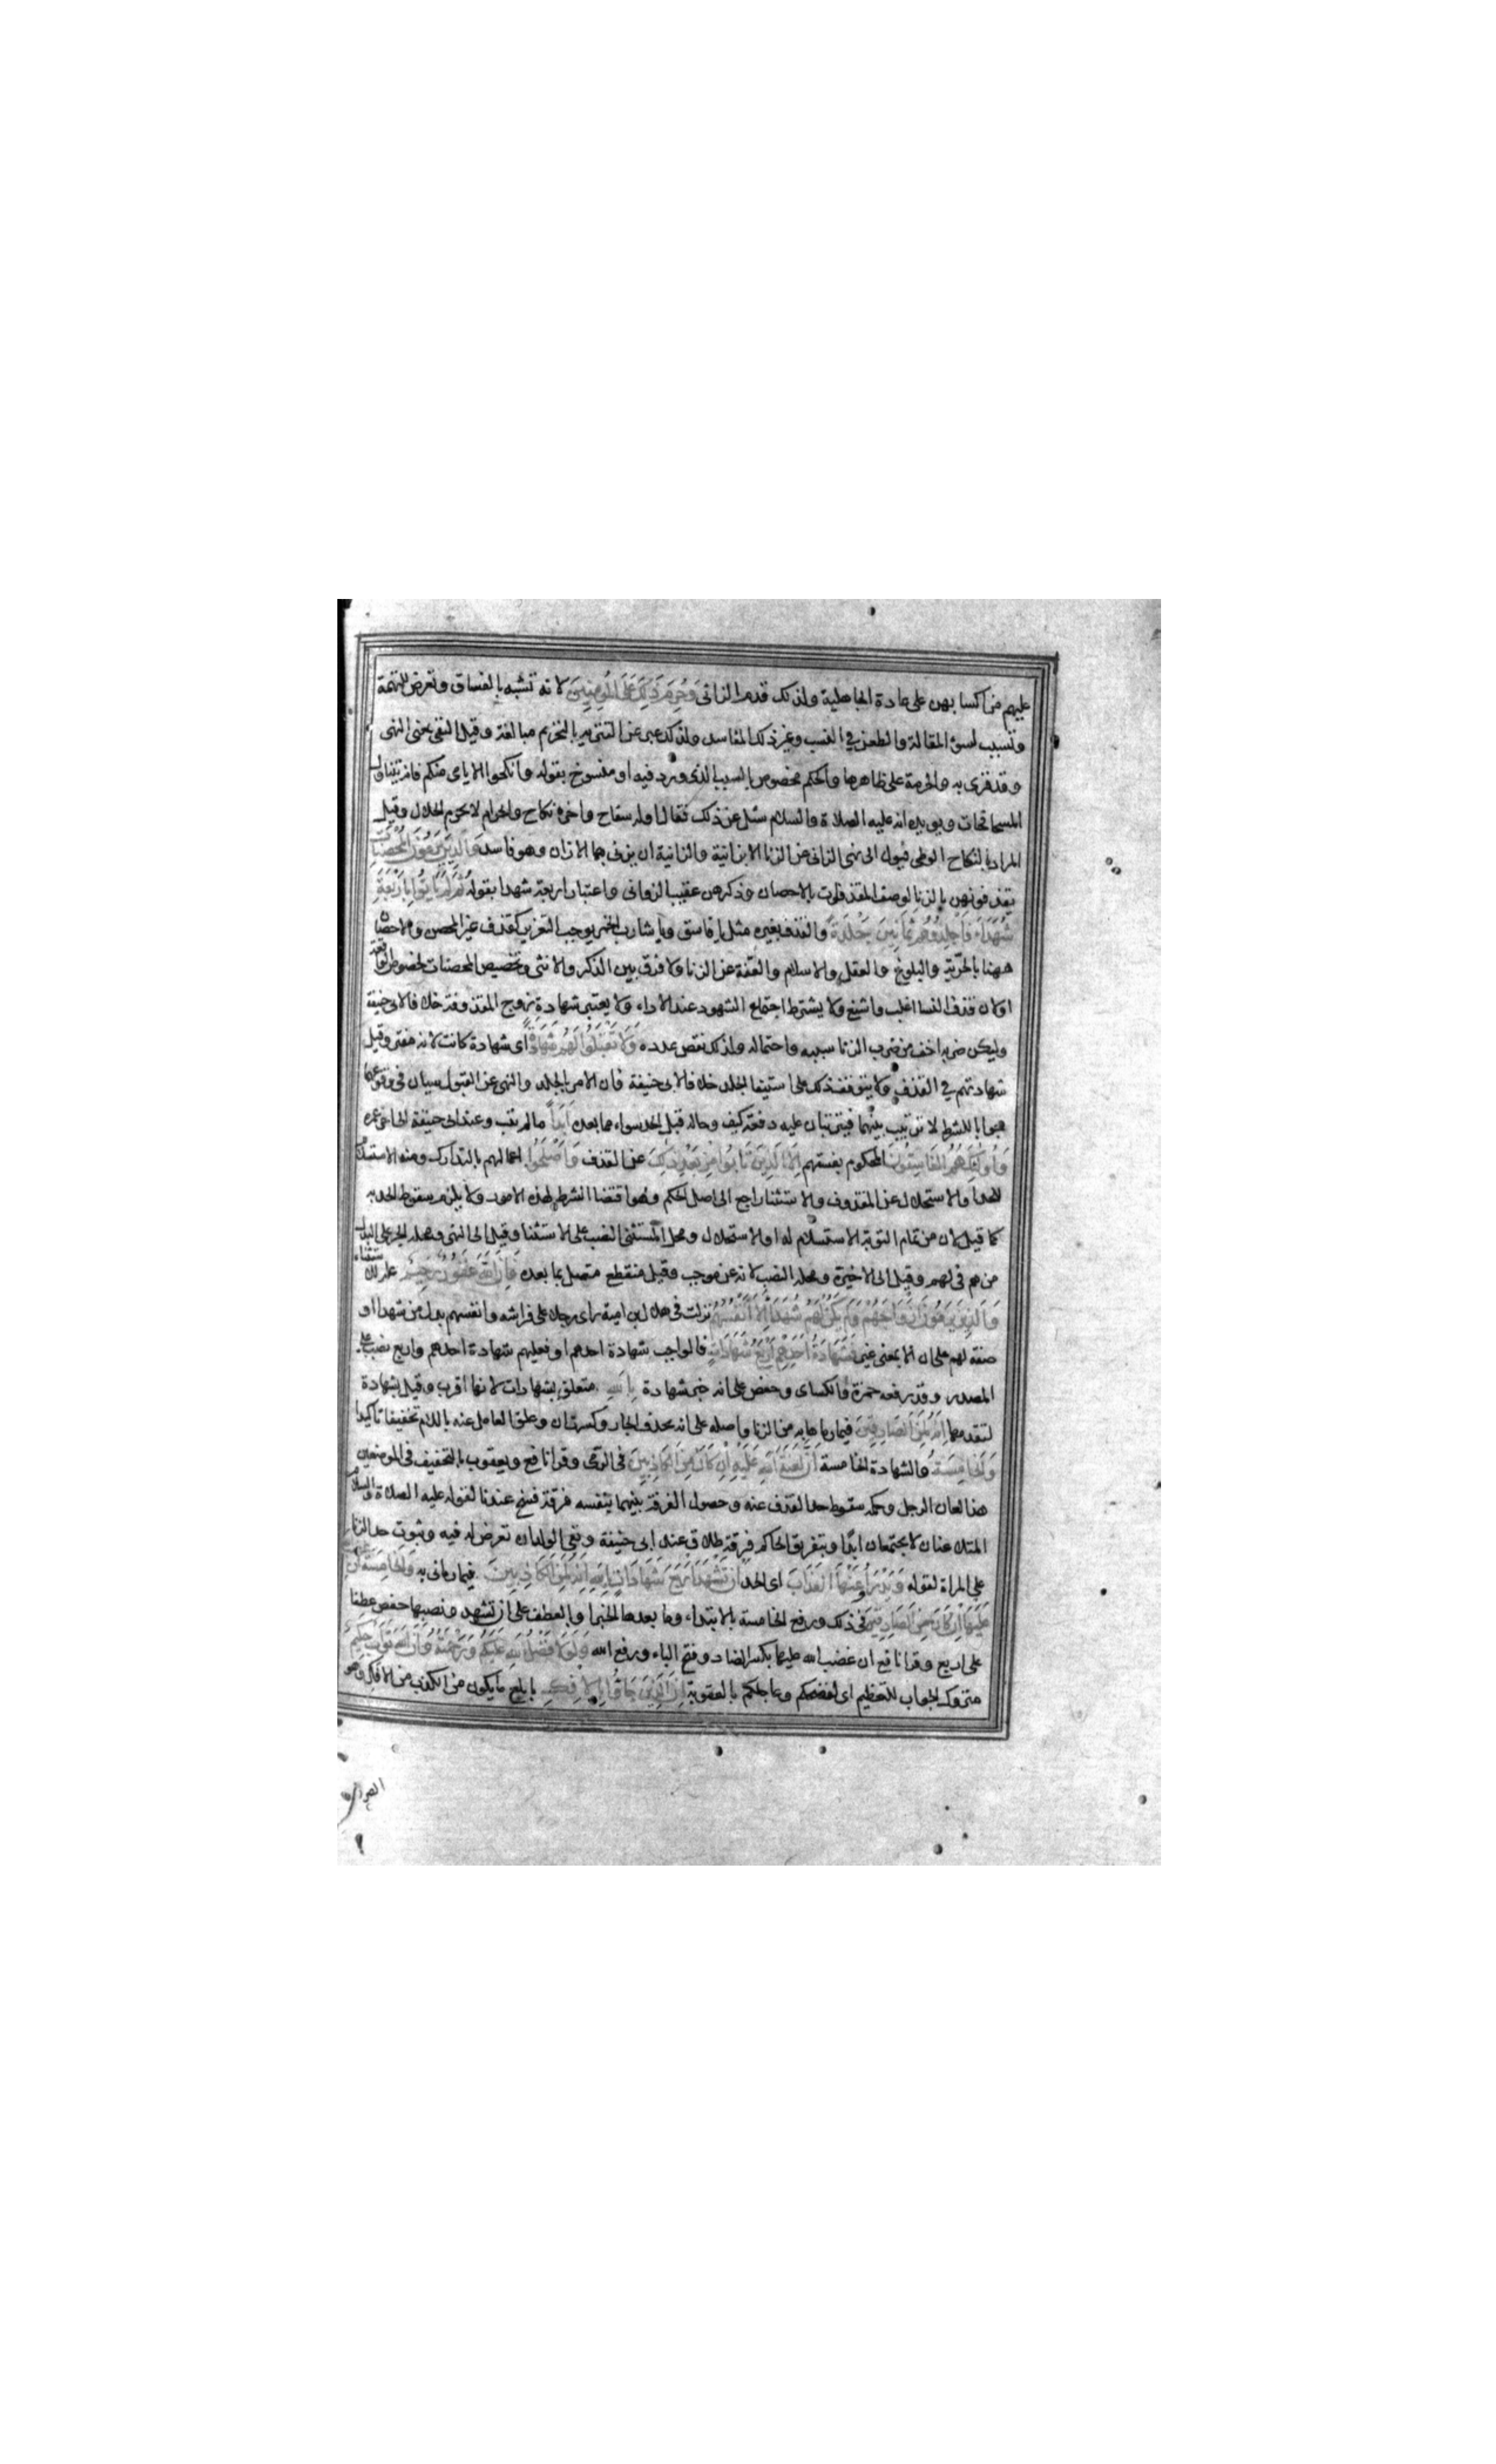 عليهم من اكسابهن على عادة الجاهلية ولذلك قدم الزاني وَحُرِّمَ ذَلِكَ عَلَى الْمُؤْمِنِينَ لانه تشبه بالفساق وتعرض للتهمة
وتسبب لسوء المقالة والطعن في النسب وغير ذلك المفاسد ولذلك عبر عن التنزيه بالتحريم مبالغة وقيل النفي بمعنى النهي
وقد قرئ به والحرمة على ظاهرها والحكم مخصوص بالسبب الذي ورد فيه او منسوخ بقوله وانكحوا الايامى منكم فانه يتناول
المسافحات ويؤيده انه عليه الصلاة والسلام سئل عن ذلك فقال اوله سفاح واخره نكاح والحرام لا يحرم الحلال وقيل
المراد بالنكاح الوطى فيؤل الى نهي الزاني عن الزنا الا بزانية والزانية ان يزني بها الا زان وهو فاسد وَالَّذِينَ يَرْمُونَ الْمُحْصَنَاتِ
يقذفونهن بالزنا لوصف المقذوفات بالاحصان وذكرهن عقيب الزواني واعتبار اربعة شهدا بقوله ثُمَّ لَمْ يَأْتُوا بِأَرْبَعَةِ
شُهَدَاءَ فَاجْلِدُوهُمْ ثَمَانِينَ جَلْدَةً والقذف بغيره مثل يا فاسق ويا شارب الخمر يوجب التعزير كقذف غير المحصن والاحصان
ههنا بالحرية والبلوغ والعقل والاسلام والعفة عن الزنا ولا فرق بين الذكر والانثى وتخصيص المحصنات لخصوص الواقعة
او لان قذف النسا اغلب واشنع ولا يشترط اجتماع الشهود عند الاداء ولا يعتبر شهادة زوج المقذوفة خلافا لابي حنيفة
وليكن ضربه اخف من ضرب الزنا سببه واحتماله ولذلك نقص عدده وَلَا تَقْبَلُوا لَهُمْ شَهَادَةً اى شهادة كانت لانه مفتر وقيل
شهادتهم في القذف ولا يتوقف ذلك على استيفا الجلد خلافا لابي حنيفة فان الامر بالجلد والنهي عن القبول سيان في وقوعهما
جوابا للشرط لا ترتيب بينهما فيترتبان عليه دفعة كيف وحاله قبل الحد سواء مما بعده أَبَدًا ما لم يتب وعند ابي حنيفة الى اخر عمره
وَأُولَئِكَ هُمُ الْفَاسِقُونَ المحكوم بفسقهم إِلَّا الَّذِينَ تَابُوا مِنْ بَعْدِ ذَلِكَ عن القذف وَأَصْلَحُوا اعمالهم بالتدارك ومنه الاستسلام
للحد او الاستحلال عن المقذوف والاستثنا راجع الى اصل الحكم وهو اقتضا الشرط لهذه الامور ولا يلزم سقوط الحد به
كما قيل لان من تمام التوبة الاستسلام له او الاستحلال ومحل المستثنى النصب على الاستثنا وقيل الى النهي ومحله الجر على البدل
من هم في لهم وقيل الى الاخيرة ومحله النصب لانه عن موجب وقيل منقطع متصل بما بعده فَإِنَّ اللَّهَ غَفُورٌ رَحِيمٌ علة للاستثناء
وَالَّذِينَ يَرْمُونَ أَزْوَاجَهُمْ وَلَمْ يَكُنْ لَهُمْ شُهَدَاءُ إِلَّا أَنْفُسُهُمْ نزلت في هلال بن امية راى رجلا على فراشه وانفسهم بدل من شهدا او
صفة لهم على ان الا بمعنى غير فَشَهَادَةُ أَحَدِهِمْ أَرْبَعُ شَهَادَاتٍ فالواجب شهادة احدهم او فعليهم شهادة احدهم واربع نصب على
المصدر وقد رفعه حمزة والكساى وحفص على انه خبر شهادة بِاللَّهِ متعلق بشهادات لانها اقرب وقيل بشهادة
لتقدمها إِنَّهُ لَمِنَ الصَّادِقِينَ فيما رماها به من الزنا واصله على انه فحذف الجار وكسرت ان وعلق العامل عنه باللام تخفيفا تاكيدا
وَالْخَامِسَةُ والشهادة الخامسة أَنَّ لَعْنَةَ اللَّهِ عَلَيْهِ إِنْ كَانَ مِنَ الْكَاذِبِينَ في الرمى وقرا نافع ويعقوب بالتخفيف في الموضعين
هذا لعان الرجل وحكمه سقوط حد القذف عنه وحصول الفرقة بينهما بنفسه فرقة فسخ عندنا لقوله عليه الصلاة والسلام
المتلاعنان لا يجتمعان ابدا وبتفريق الحاكم فرقة طلاق عند ابي حنيفة ونفي الولد ان تعرض له فيه وثبوت حد الزنا
على المراة لقوله وَيَدْرَأُ عَنْهَا الْعَذَابَ اى الحد أَنْ تَشْهَدَ أَرْبَعَ شَهَادَاتٍ بِاللَّهِ إِنَّهُ لَمِنَ الْكَاذِبِينَ فيما رماني به وَالْخَامِسَةَ أَنَّ غَضَبَ اللَّهِ
عَلَيْهَا إِنْ كَانَ مِنَ الصَّادِقِينَ في ذلك ورفع الخامسة بالابتداء وما بعدها الخبر او بالعطف على ان تشهد ونصبها حفص عطفا
على اربع وقرا نافع ان غضب الله عليها بكسر الضاد وفتح الباء ورفع الله وَلَوْلَا فَضْلُ اللَّهِ عَلَيْكُمْ وَرَحْمَتُهُ وَأَنَّ اللَّهَ تَوَّابٌ حَكِيمٌ
متروك الجواب للتعظيم اى لفضحكم وعاجلكم بالعقوبة إِنَّ الَّذِينَ جَاءُوا بِالْإِفْكِ بابلغ ما يكون من الكذب من الافك وهو